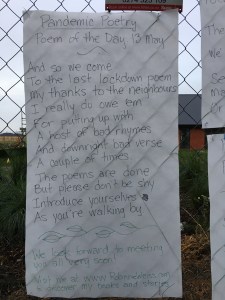 Pandemic Poetry
Poem of the Day 13 May
And so we come
To the last lockdown poem
My thanks to the neighbours
I really do owe 'em
For putting up with
A host of bad rhymes
And downright bad verse
A couple of times
The poems are done
But please don't be shy
Introduce yourselves
As you're walking by
We look forward to meeting
you all very soon!
Visit me at www.
to discover my books and stories